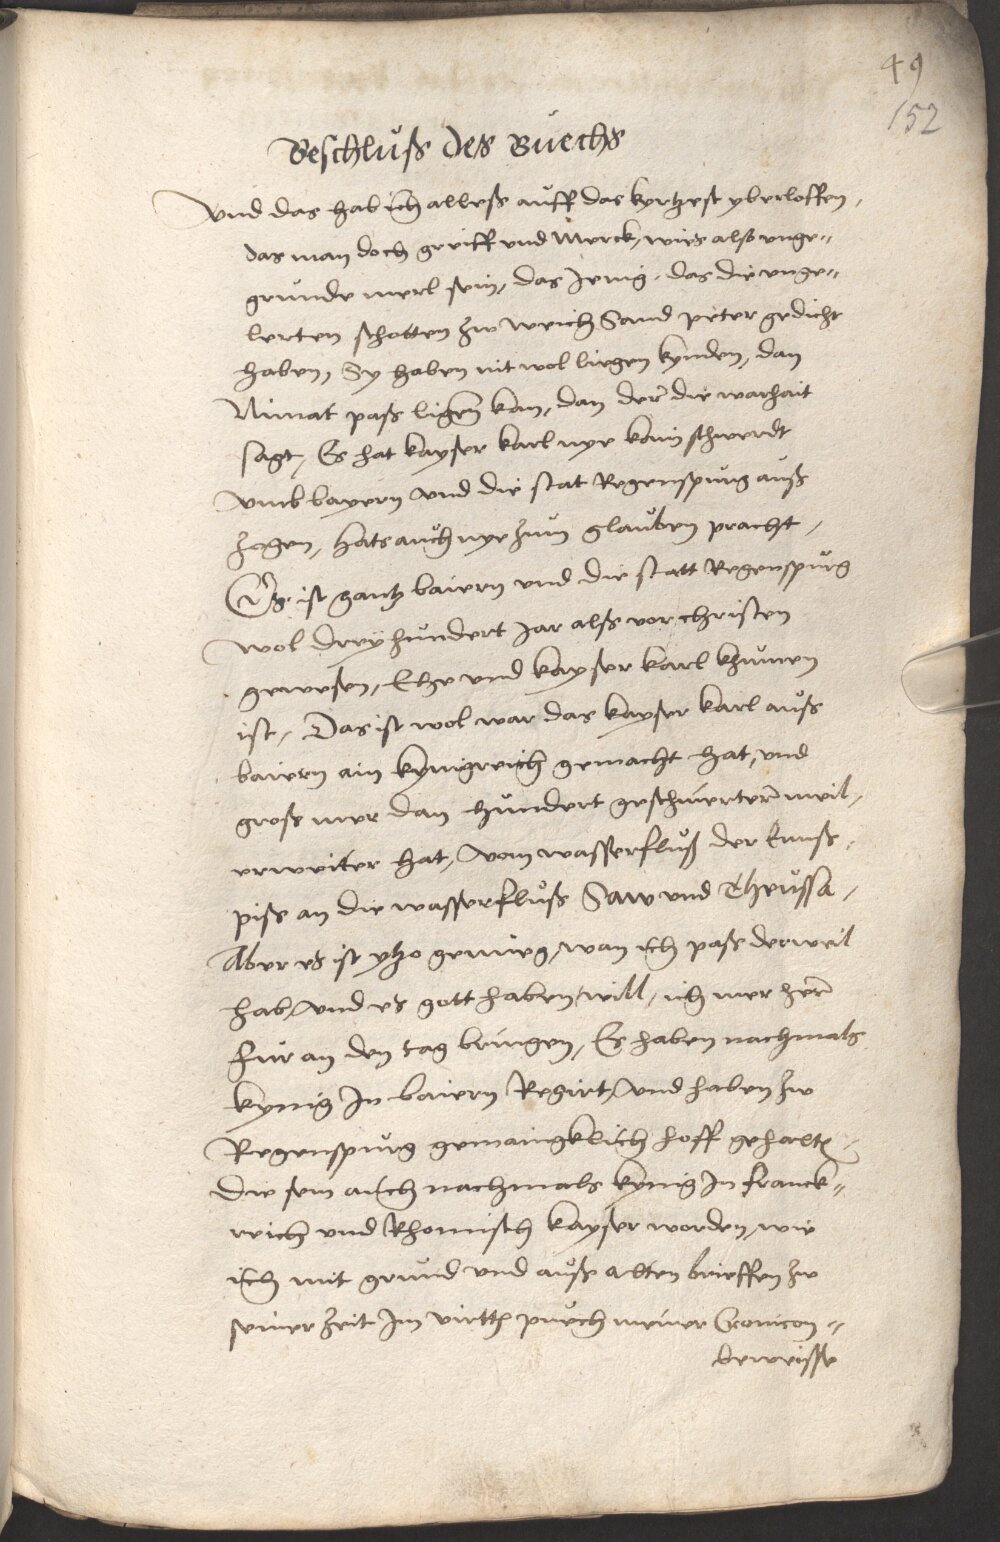 49
152
Beschluß des Buechs
Vnd das hab ich alleß auff das kyrtzest yberloffen,
das man doch greiff vnd merck, wies also vnge-
grunde merl sein, das Jenig, das die vnge-
lerten schotten zw weich Sand peter gedicht
haben, Sy haben nit wol liegen kynden, dan
Nimat paß ligen kan, dan der die warhait
sagt, Es hat kayser karl nye kain schwerdt
vmb bayern vnd die stat Regenspurg auß
zogen, hats auch nye zum glauben pracht,
Es ist gantz baiern vnd die statt Regenspurg
wol dreyhundert Jar alß vor christen
gewesen, Ehe vnd kayser karl khumen
ist, Das ist wol war das kayser karl auß
baiern ain kynigreich gemacht hat, vnd
groß mer dan hundert geschmerter meil,
erweiter hat, vom wasserfluß der Enß,
piß an die wasserfluß Saw vnd Theussa,
Aber es ist ytzo genueg, wan ich paß derweil
hab, vnd es gott haben will, ich mer her
fur an den tag bringen, Es haben nachmals
kynig In baiern Regirt, vnd haben zw
Regenspurg gemaingklich hoff gehalten
die sein auch nachmals kynig In franck-
reich vnd Rhomisch kayser worden, wie
ich mit grund vnd auß alten brieffen zw
seiner Zeit Im virtten puech meiner Cronicon-
beweisse